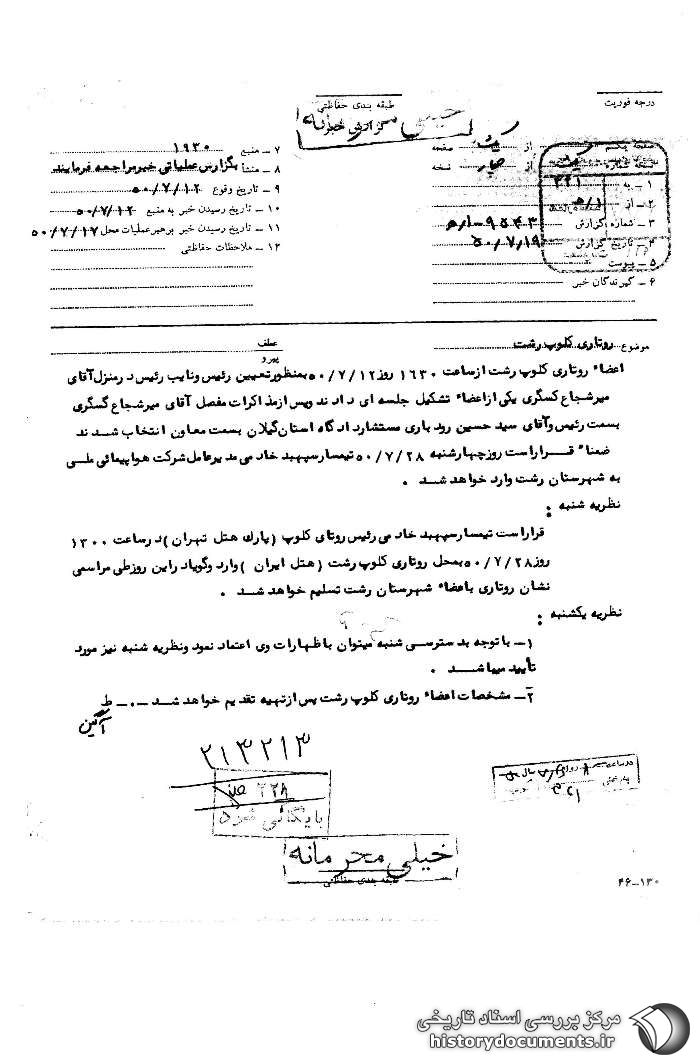 درجه فوریت
طبقه بندی حفاظتی
خیلی محرمانه
گزارش خبر
صفحه یکم از یک صفحه
نسخه شماره از چهار نسخه
۱ ـ به ۳۴۱
۲ ـ از ۱/ه
۳ ـ شماره گزارش
۴ ـ تاریخ گزارش ۵۰/۷/۱۹
۵ ـ پیوست
۶ ـ گیرندگان خبر
۷ ـ منبع ۱۹۳۰
۸ ـ منشأ بگزارش عملیاتی خبر مراجعه فرمایند
۹ ـ تاریخ وقوع ۵۰/۷/۱۲
۱۰ ـ تاریخ رسیدن خبر به منبع ۵۰/۷/۱۲
۱۱ ـ تاریخ رسیدن خبر برهبر عملیات محل ۵۰/۷/۱۷
۱۲ ـ ملاحظات حفاظتی
موضوع روتاری کلوپ رشت
عطف
پیرو
اعضاء روتاری کلوپ رشت از ساعت ۱۶۳۰ روز ۵۰/۷/۱۲ بمنظور تعیین رئیس و نایب رئیس در منزل آقای
میرشجاع کسگری یکی از اعضاء تشکیل جلسه ای دادند وپس از مذاکرات مفصل آقای میرشجاع کسگری
بسمت رئیس وآقای سید حسین رودباری مستشار دادگاه استان گیلان بسمت معاون انتخاب شدند
ضمناً قرار است روز چهارشنبه ۵۰/۷/۲۸ تیمسار سپهبد خادمی مدیرعامل شرکت هواپیمائی ملی
به شهرستان رشت وارد خواهد شد .
نظریه شنبه :
قرار است تیمسار سپهبد خادمی رئیس روتای کلوپ (پارك هتل تهران) در ساعت ۱۳۰۰
روز ۵۰/۷/۲۸ بمحل روتاری کلوپ رشت (هتل ایران) وارد وگویا در این روز طی مراسمی
نشان روتاری باعضاء شهرستان رشت تسلیم خواهد شد .
نظریه یکشنبه :
۱ـ با توجه بدسترسی شنبه میتوان باظهارات وی اعتماد نمود ونظریه شنبه نیز مورد
تأیید میباشد .
۲ـ مشخصات اعضاء روتاری کلوپ رشت پس از تهیه تقدیم خواهد شد ـ.ـ ط
آئین
۲۱۳۲۱۳
۲۲۸
بایگانی شود
خیلی محرمانه
طبقه بندی حفاظتی
۴۶-۱۳۰
مرکز بررسی اسناد تاریخی
historydocuments.ir